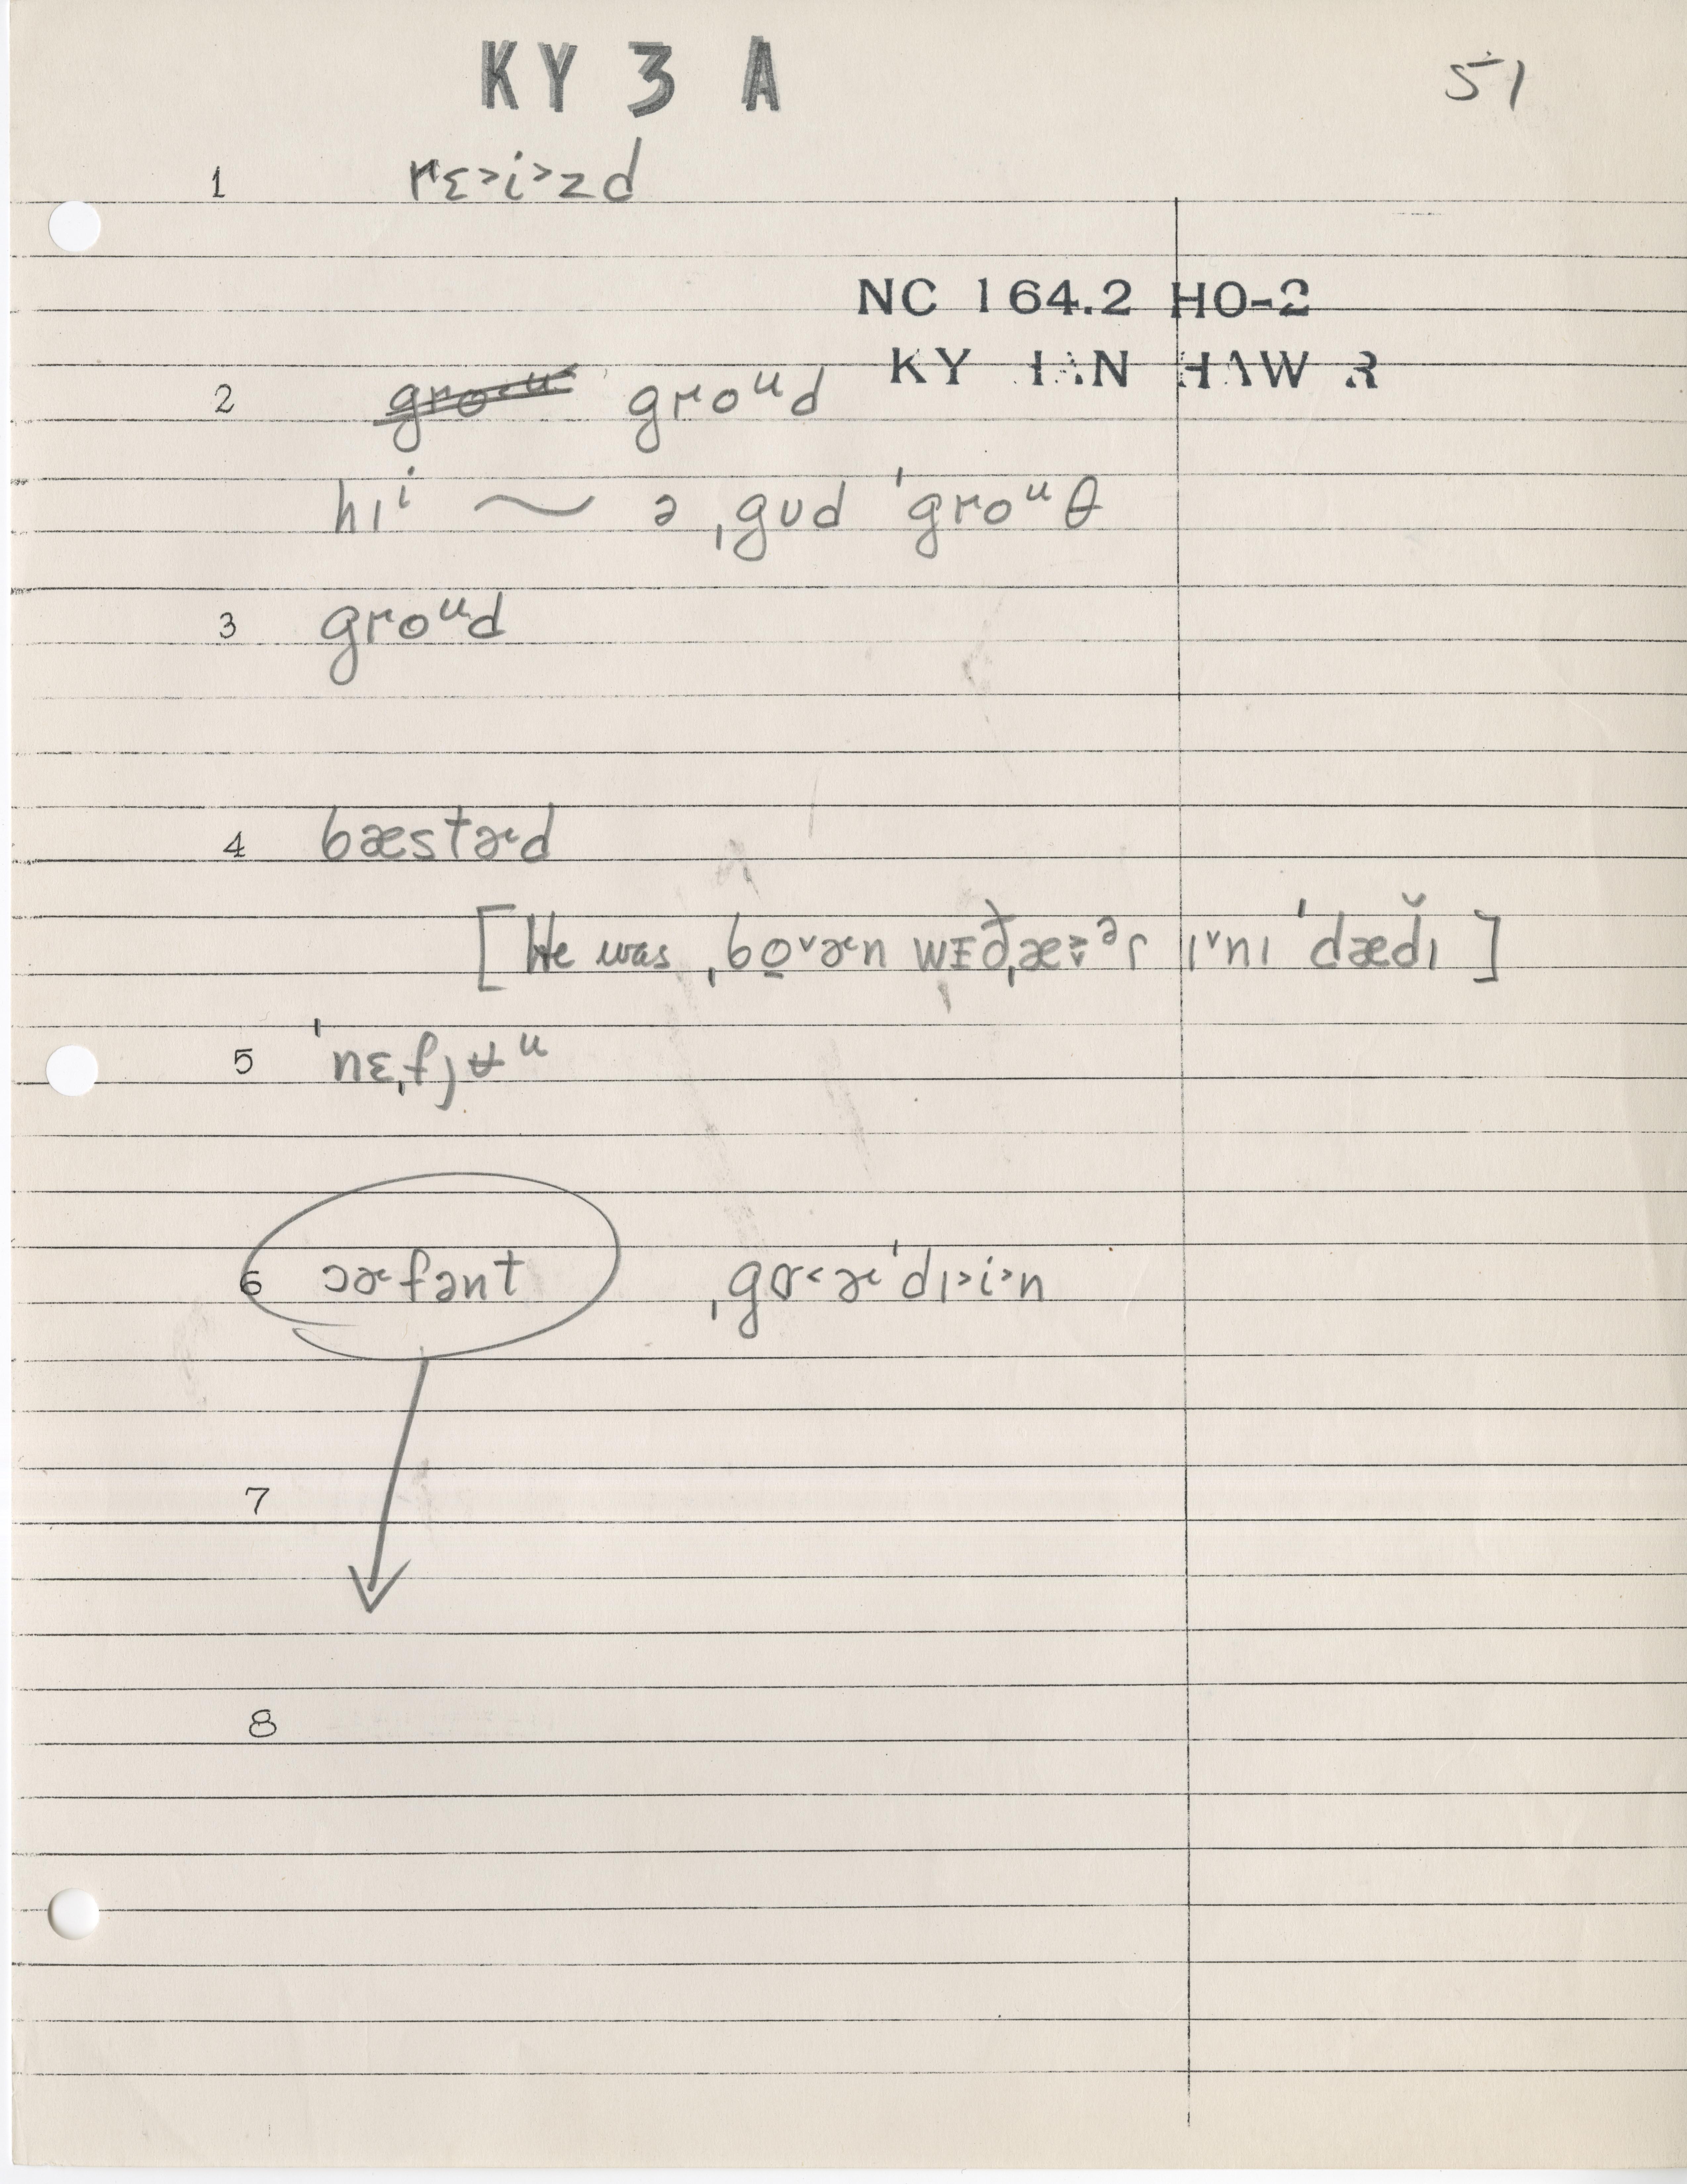 KY 3 A
51
1 rɛ˃i˃zd
NC 164.2 HO-2
KY
2 groᵘ groᵘd
hɪⁱ ~ ə ˌgʊd ˈgroᵘθ
3 groᵘd
4 bæstɚd
[He was ˌbo̱˅ɚn ˈdædɪ̆]
5 ˈnɛˌfjʉᵘ
6 ɔɚfənt ˌgɑ˂ɚˈdɪ˃i˃n
7
8